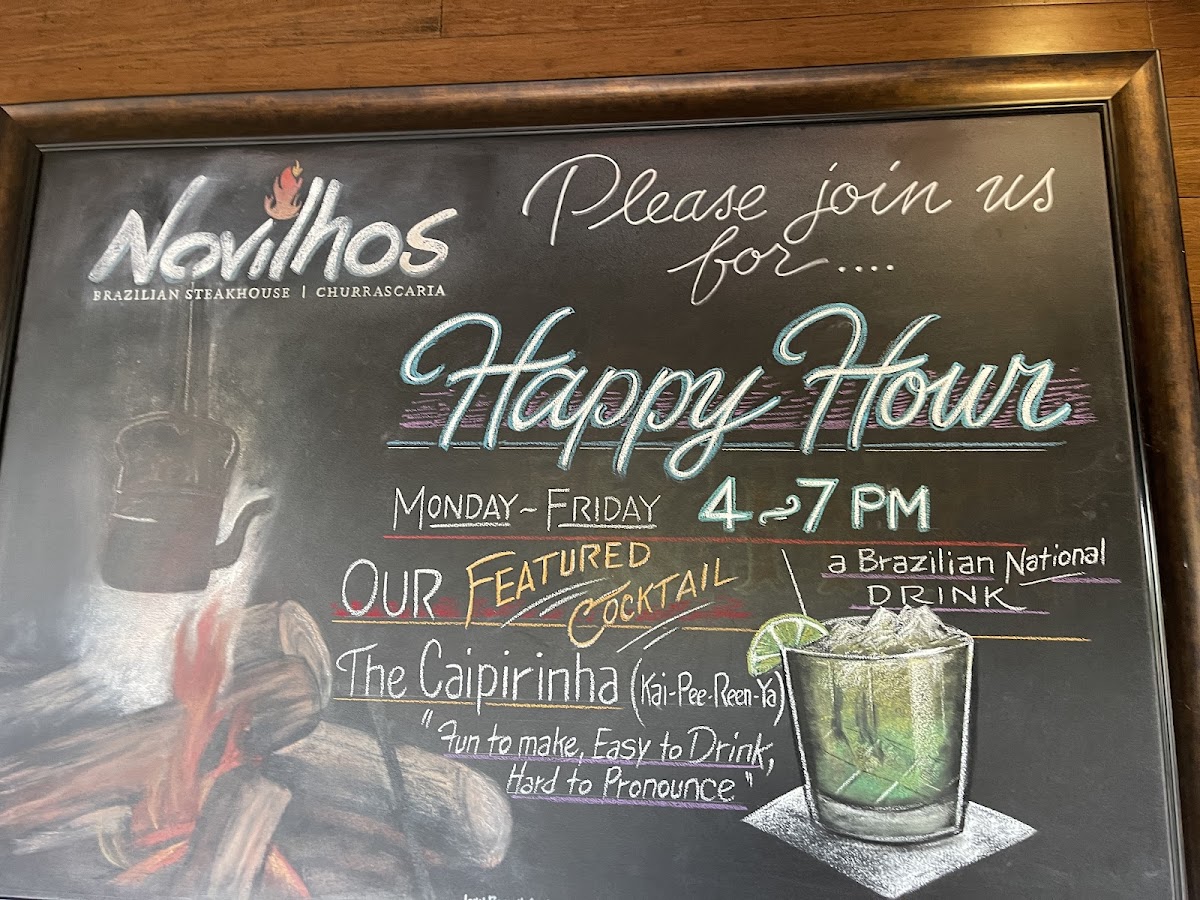 Novilhos
BRAZILIAN STEAKHOUSE | CHURRASCARIA
Please join us
for....
Happy Hour
MONDAY ~ FRIDAY 4~7 PM
OUR FEATURED COCKTAIL
a Brazilian National
DRINK
The Caipirinha (Kai-Pee-Reen-Ya)
"Fun to make, Easy to Drink,
Hard to Pronounce"